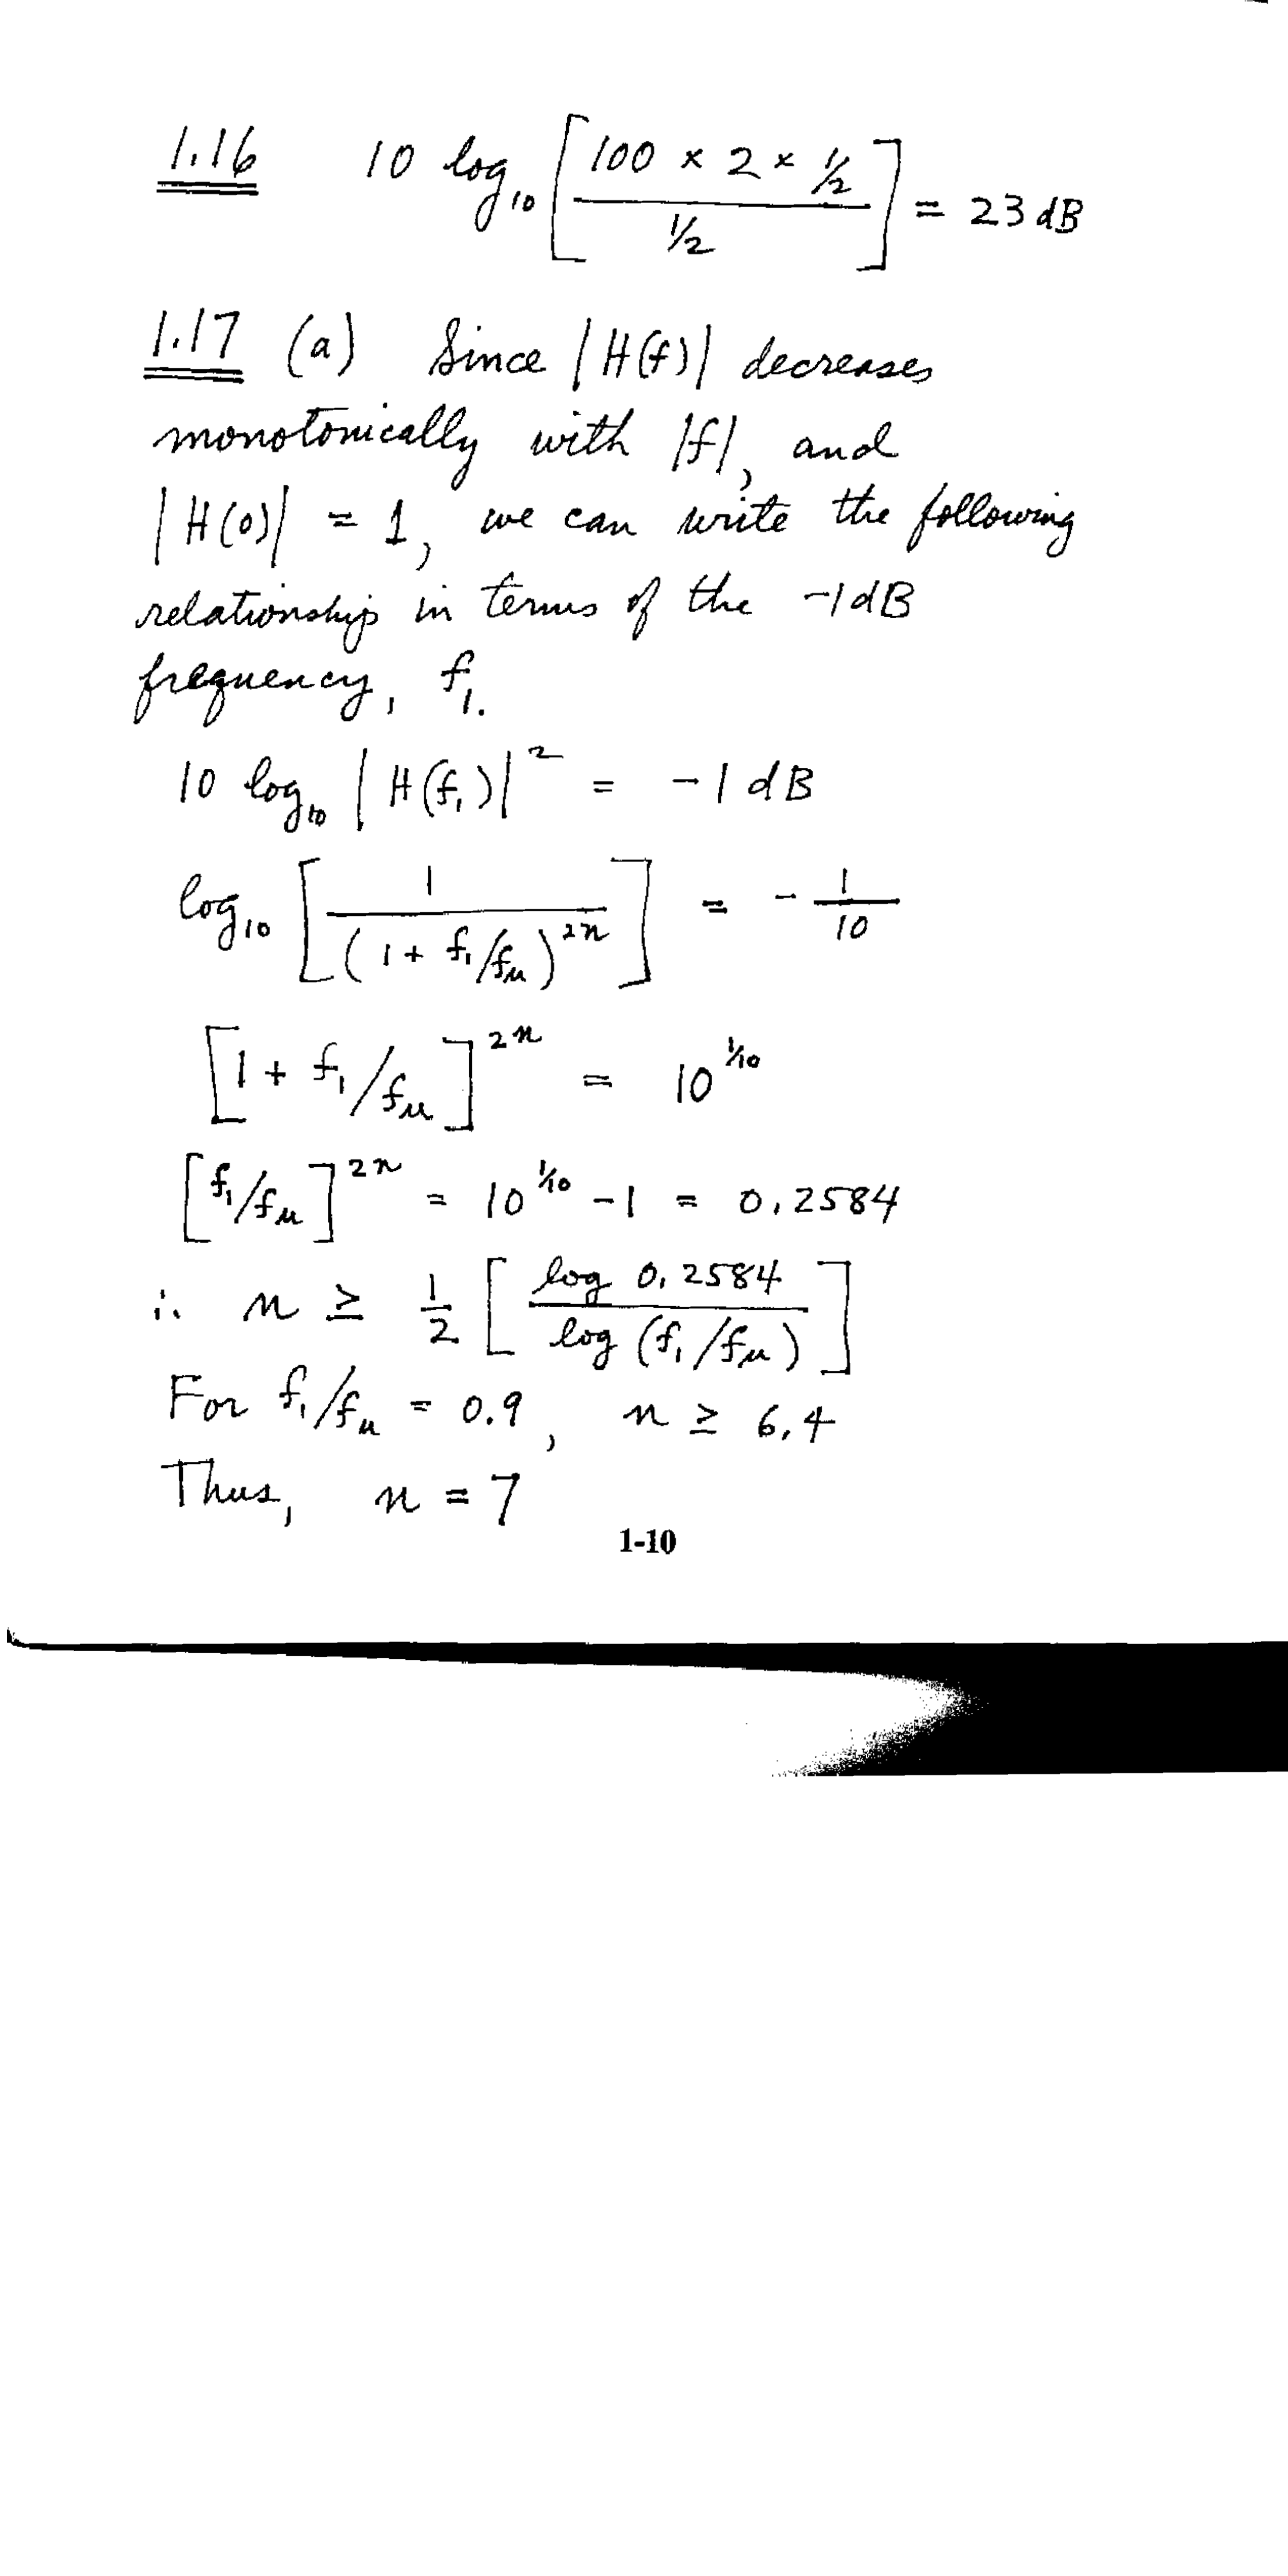 1.16 10 log₁₀ [ (100 × 2 × ½) / (½) ] = 23 dB
1.17 (a) Since |H(f)| decreases
monotonically with |f|, and
|H(0)| = 1, we can write the following
relationship in terms of the -1dB
frequency, f₁.
10 log₁₀ |H(f₁)|² = -1 dB
log₁₀ [ 1 / (1 + f₁/fᵤ)²ⁿ ] = - 1/10
[1 + f₁/fᵤ]²ⁿ = 10^(1/10)
[f₁/fᵤ]²ⁿ = 10^(1/10) - 1 = 0.2584
∴ n ≥ 1/2 [ log 0.2584 / log (f₁/fᵤ) ]
For f₁/fᵤ = 0.9, n ≥ 6.4
Thus, n = 7
1-10